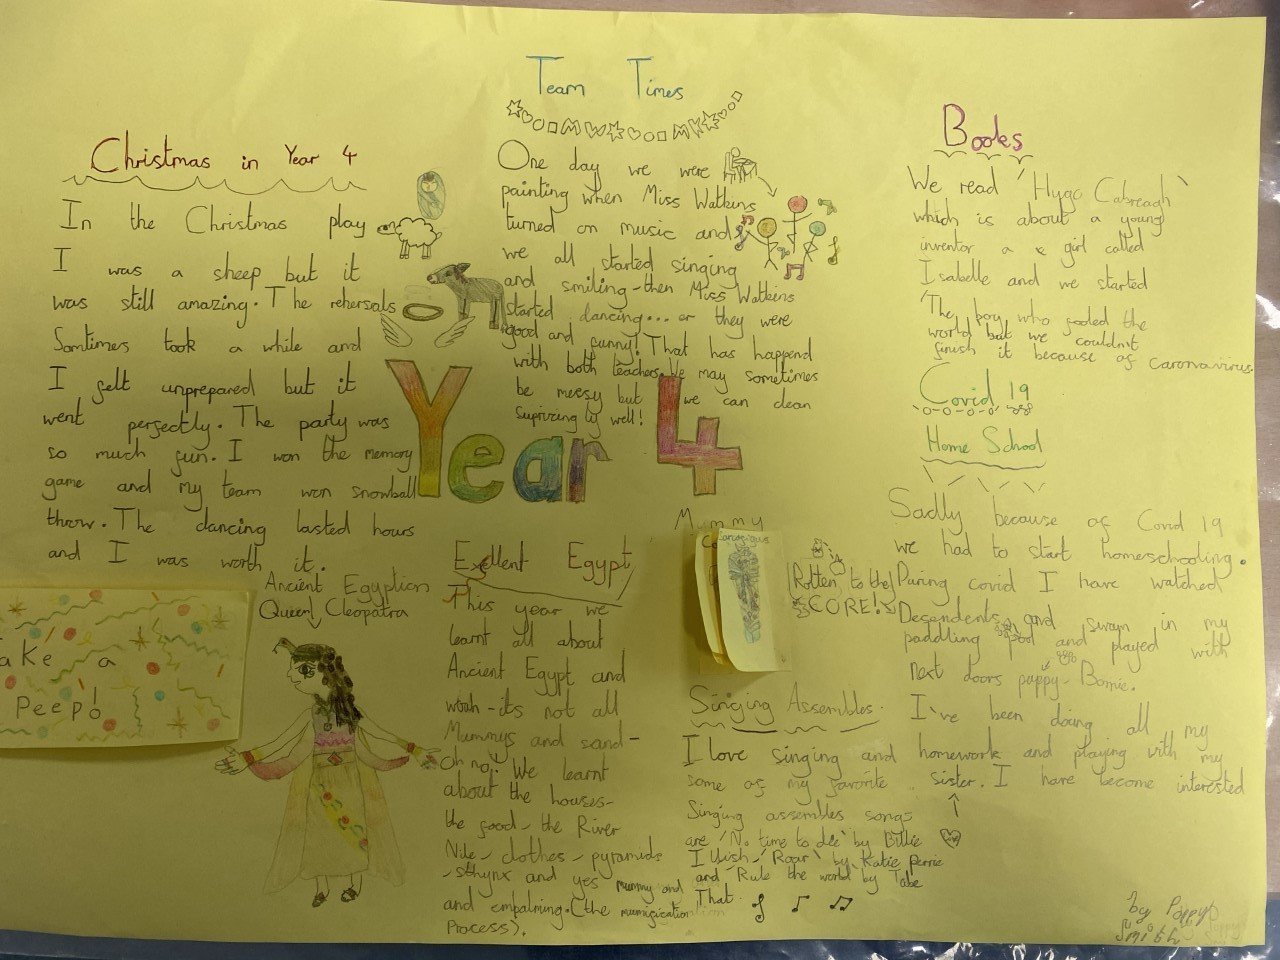 Christmas in Year 4
In the Christmas play
I was a sheep but it
was still amazing. The rehersals
Somtimes took a while and
I felt unprepared but it
went perfectly. The party was
so much fun. I won the memory
game and my team won snowball
throw. The dancing lasted hours
and I was worth it.
Take a
Peep!
Ancient Egyptian
Queen Cleopatra
Team Times
One day we were
painting when Miss Watkins
turned on music and
we all started singing
and smiling - then Miss Watkins
started dancing... er they were
good and funny! That has happend
with both teachers. We may sometimes
be messy but we can clean
suprizing ly well!
Year 4
Exellent Egypt
This year we
learnt all about
Ancient Egypt and
woah - its not all
Mummys and sand -
oh no! We learnt
about the houses -
the food - the River
Nile - clothes - pyramids
- sthynx and yes mummy and
and empalming. (the mumification
Process).
Mummy
Rotten to the
CORE!
Singing Assembles
I love singing and
some of my favorite
Singing assembles songs
are 'No time to die' by Billie
I llish - 'Roar' by Katie perrie
and - Rule the world by Take
That.
Books
We read 'Hugo Cabreagh'
which is about a young
inventor a girl called
Isabelle and we started
'The boy who fooled the
world but we couldn't
finish it because of caronavirus
Covid 19
Home School
Sadly because of Covid 19
we had to start homeschooling.
During covid I have watched
Decendents and swam in my
paddling pool and played with
next doors puppy - Bonnie.
I've been doing all my
homework and playing with my
sister. I have become interested
by Poppy
Smith